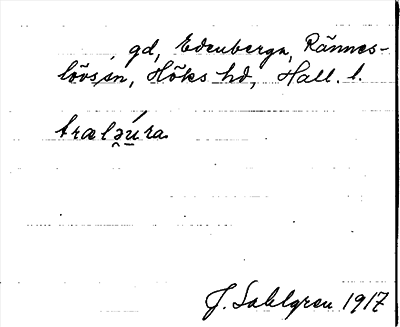 gd, Edenberga, Rännes-
lövs sn, Höks hd, Hall. l.
træləú̯ra
J. Sahlgren 1917